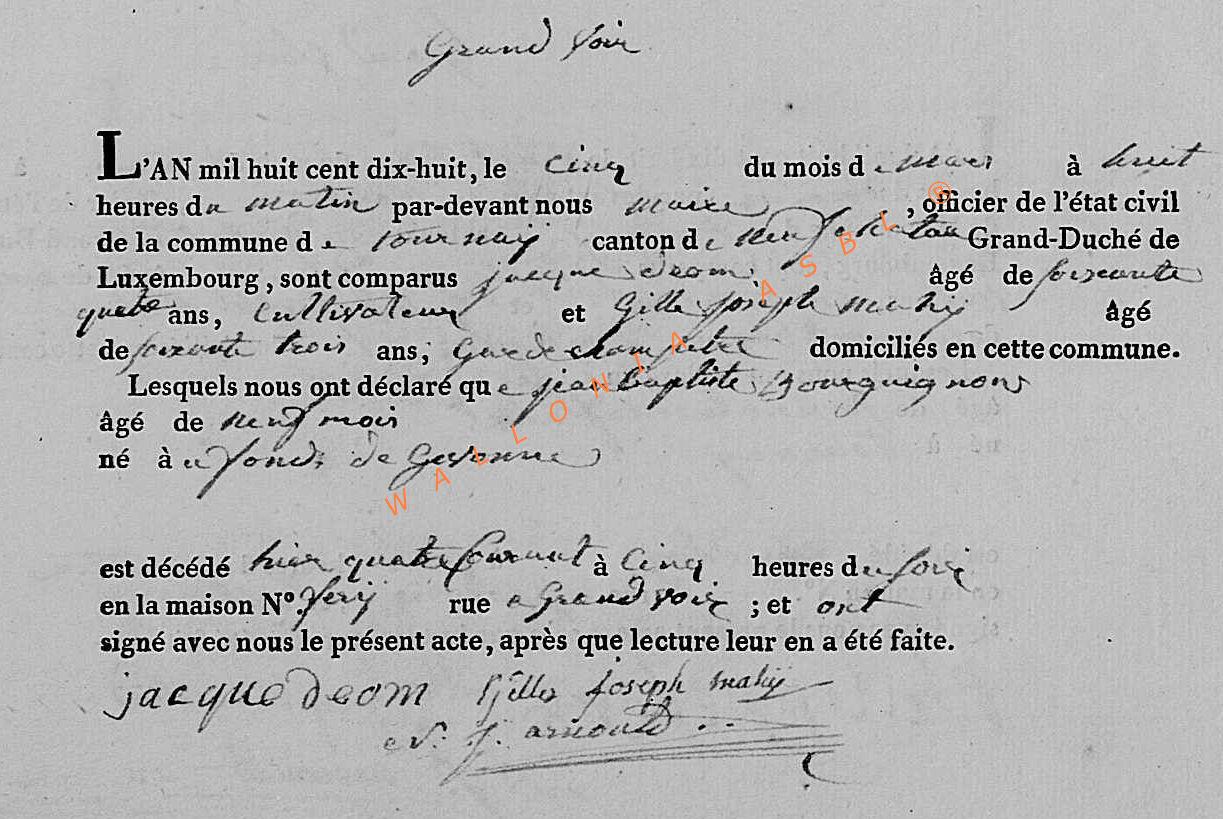 Grand Voir
L'AN mil huit cent dix-huit, le cinq du mois de mars à huit
heures du matin par-devant nous maire, officier de l'état civil
de la commune de tournay canton de neufchatau Grand-Duché de
Luxembourg, sont comparus jacque deom âgé de soixante
quatre ans, Cultivateur et Gille joseph mahy âgé
de soixante trois ans, Garde champetre domiciliés en cette commune.
Lesquels nous ont déclaré que jean baptiste Bourguignons
âgé de neuf mois
né à de
est décédé hier quatre Courant à Cinq heures du soir
en la maison Nº. rue a Grand voir ; et ont
signé avec nous le présent acte, après que lecture leur en a été faite.
jacque deom Gilles joseph mahy
N. j. arnould
WALLONIA ASBL ®